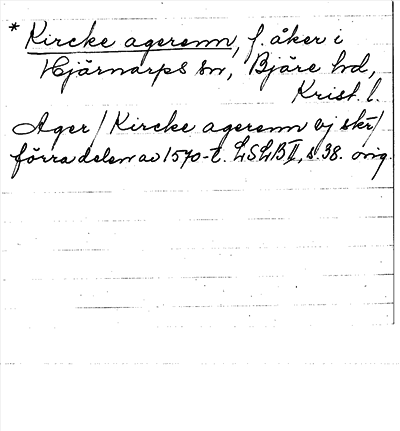 * Kircke agerenn, f. åker i
Hjärnarps sn, Bjäre hd,
Krist. l.
Ager / Kircke agerenn ej skr /
förra delen av 1570-t. LSLB II, s. 38. orig.